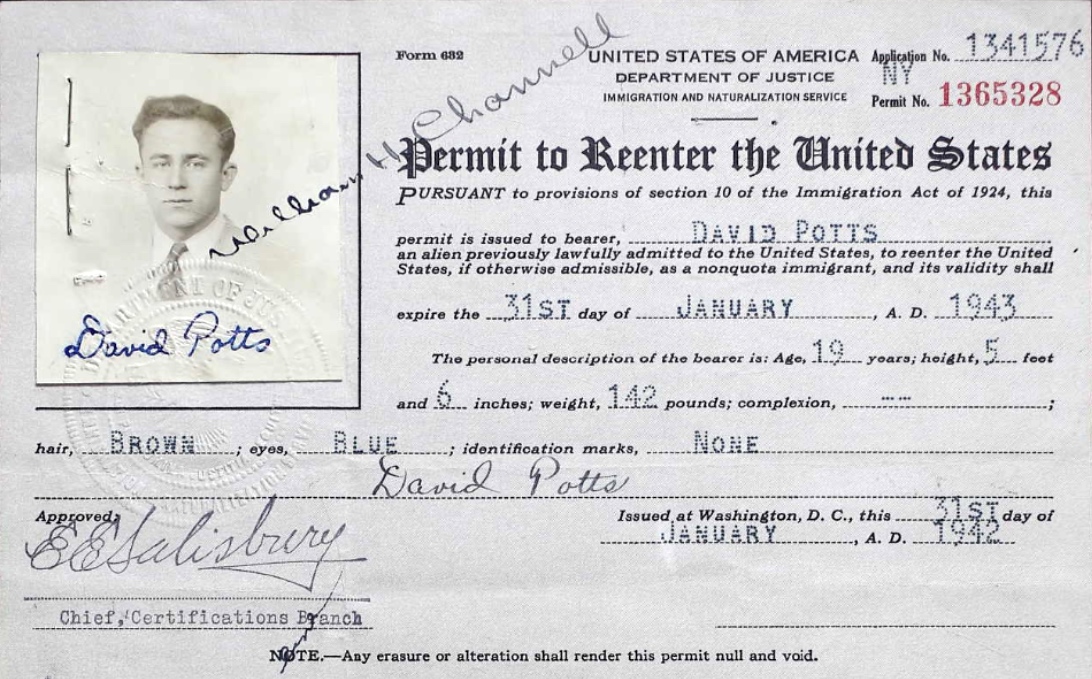 Form 632
UNITED STATES OF AMERICA
DEPARTMENT OF JUSTICE
IMMIGRATION AND NATURALIZATION SERVICE
Application No. 1341576
NY
Permit No. 1365328
William H Channell
Permit to Reenter the United States
PURSUANT to provisions of section 10 of the Immigration Act of 1924, this
permit is issued to bearer, DAVID POTTS
an alien previously lawfully admitted to the United States, to reenter the United
States, if otherwise admissible, as a nonquota immigrant, and its validity shall
expire the 31ST day of JANUARY, A. D. 1943
David Potts
The personal description of the bearer is: Age, 19 years; height, 5 feet
and 6 inches; weight, 142 pounds; complexion, -- ;
hair, BROWN ; eyes, BLUE ; identification marks, NONE
David Potts
Approved:
Issued at Washington, D. C., this 31ST day of
JANUARY, A. D. 1942
E E Salisbury
Chief, Certifications Branch
NOTE.—Any erasure or alteration shall render this permit null and void.